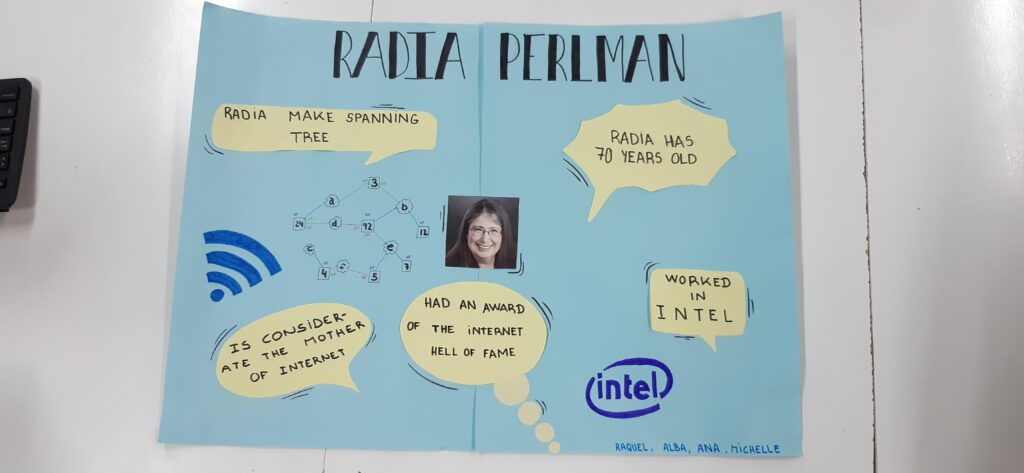 RADIA PERLMAN
RADIA MAKE SPANNING
TREE
RADIA HAS
70 YEARS OLD
3
a
b
24
d
92
12
c
e
4
f
5
7
WORKED
IN
INTEL
HAD AN AWARD
OF THE INTERNET
HELL OF FAME
IS CONSIDER-
ATE THE MOTHER
OF INTERNET
intel
RAQUEL, ALBA, ANA, MICHELLE